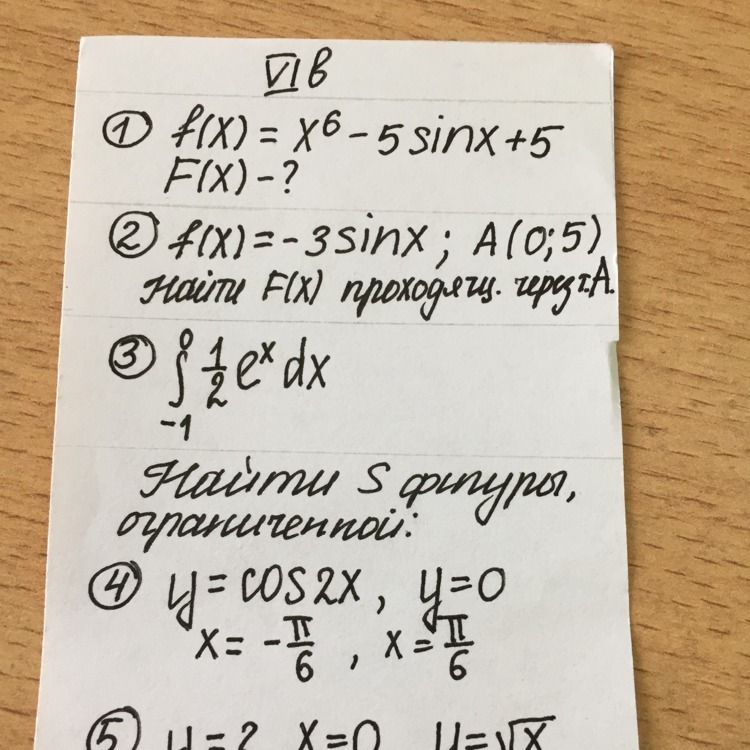 VI в
① f(x) = x⁶ - 5 sinx + 5
F(x) - ?
② f(x) = -3 sinx ; A(0;5)
Найти F(x) проходящ. через т.A.
③ ∫₋₁⁰ 1/2 eˣ dx
Найти S фигуры,
ограниченной:
④ y = cos 2x , y = 0
x = -π/6 , x = π/6
⑤ y = 2 x = 0 y = √x